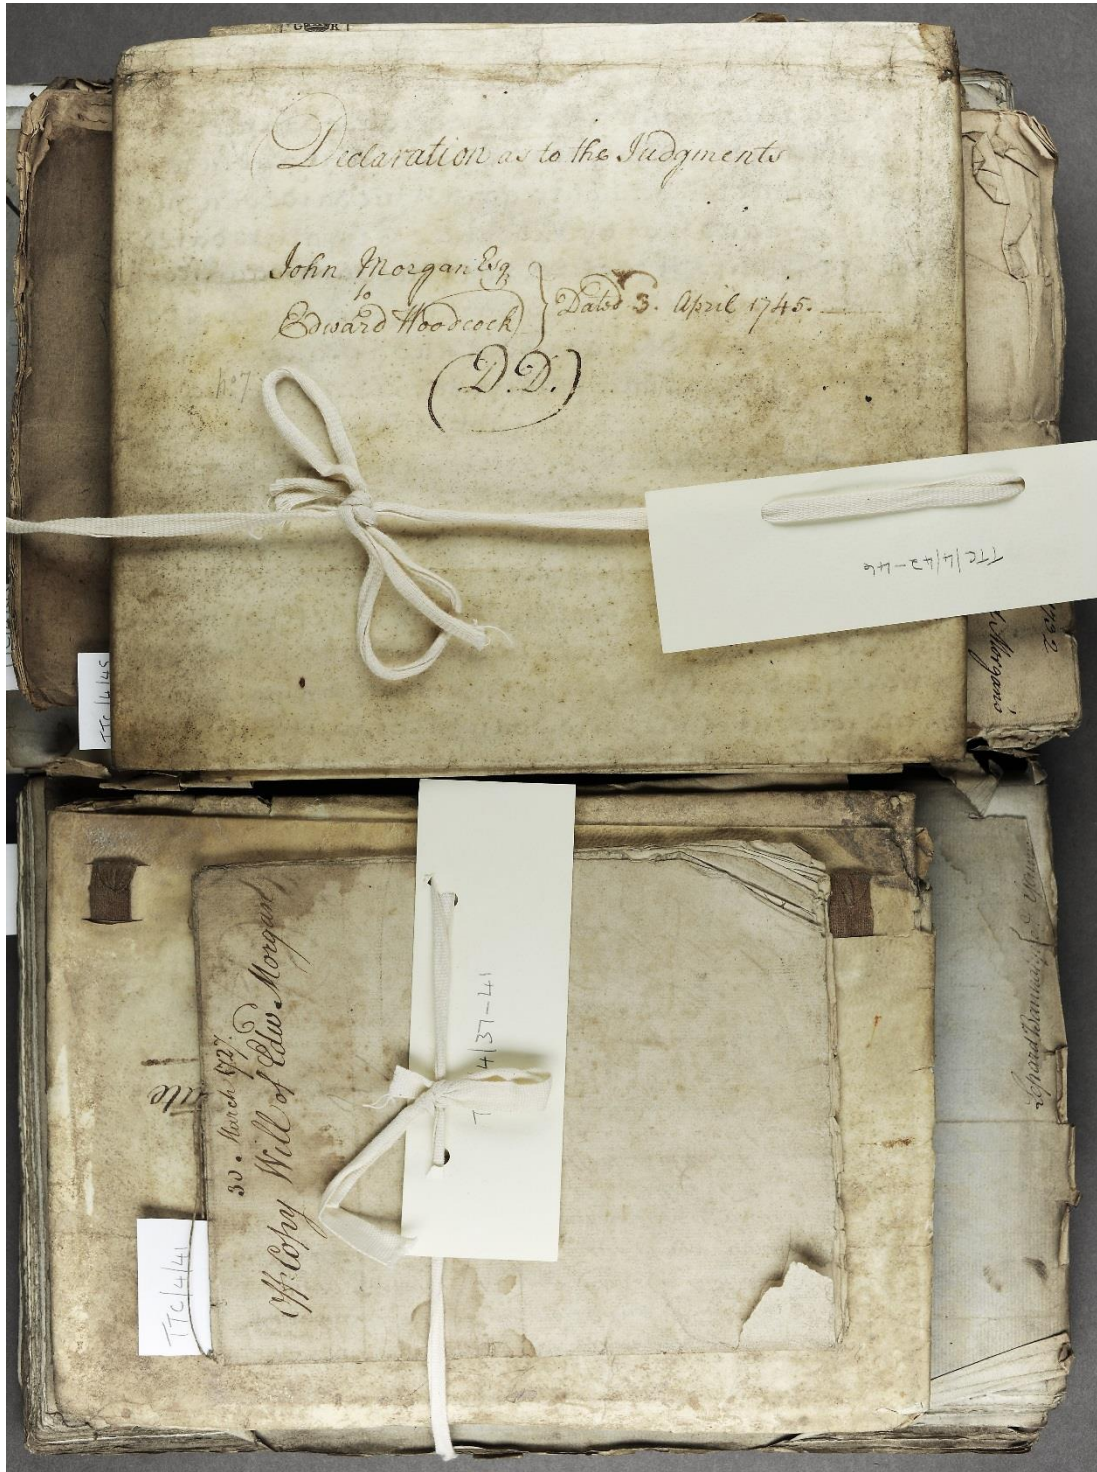 Declaration as to the Judgments
John Morgan Esq
to
Edward Woodcock
Dated 3. April 1745.
(D.D.)
No 7
TTC/4/42-46
TTC/4/45
1732
Morgan's
30. March 1727.
Off: Copy Will of Edw. Morgan
T 4/37-41
TTC/4/41